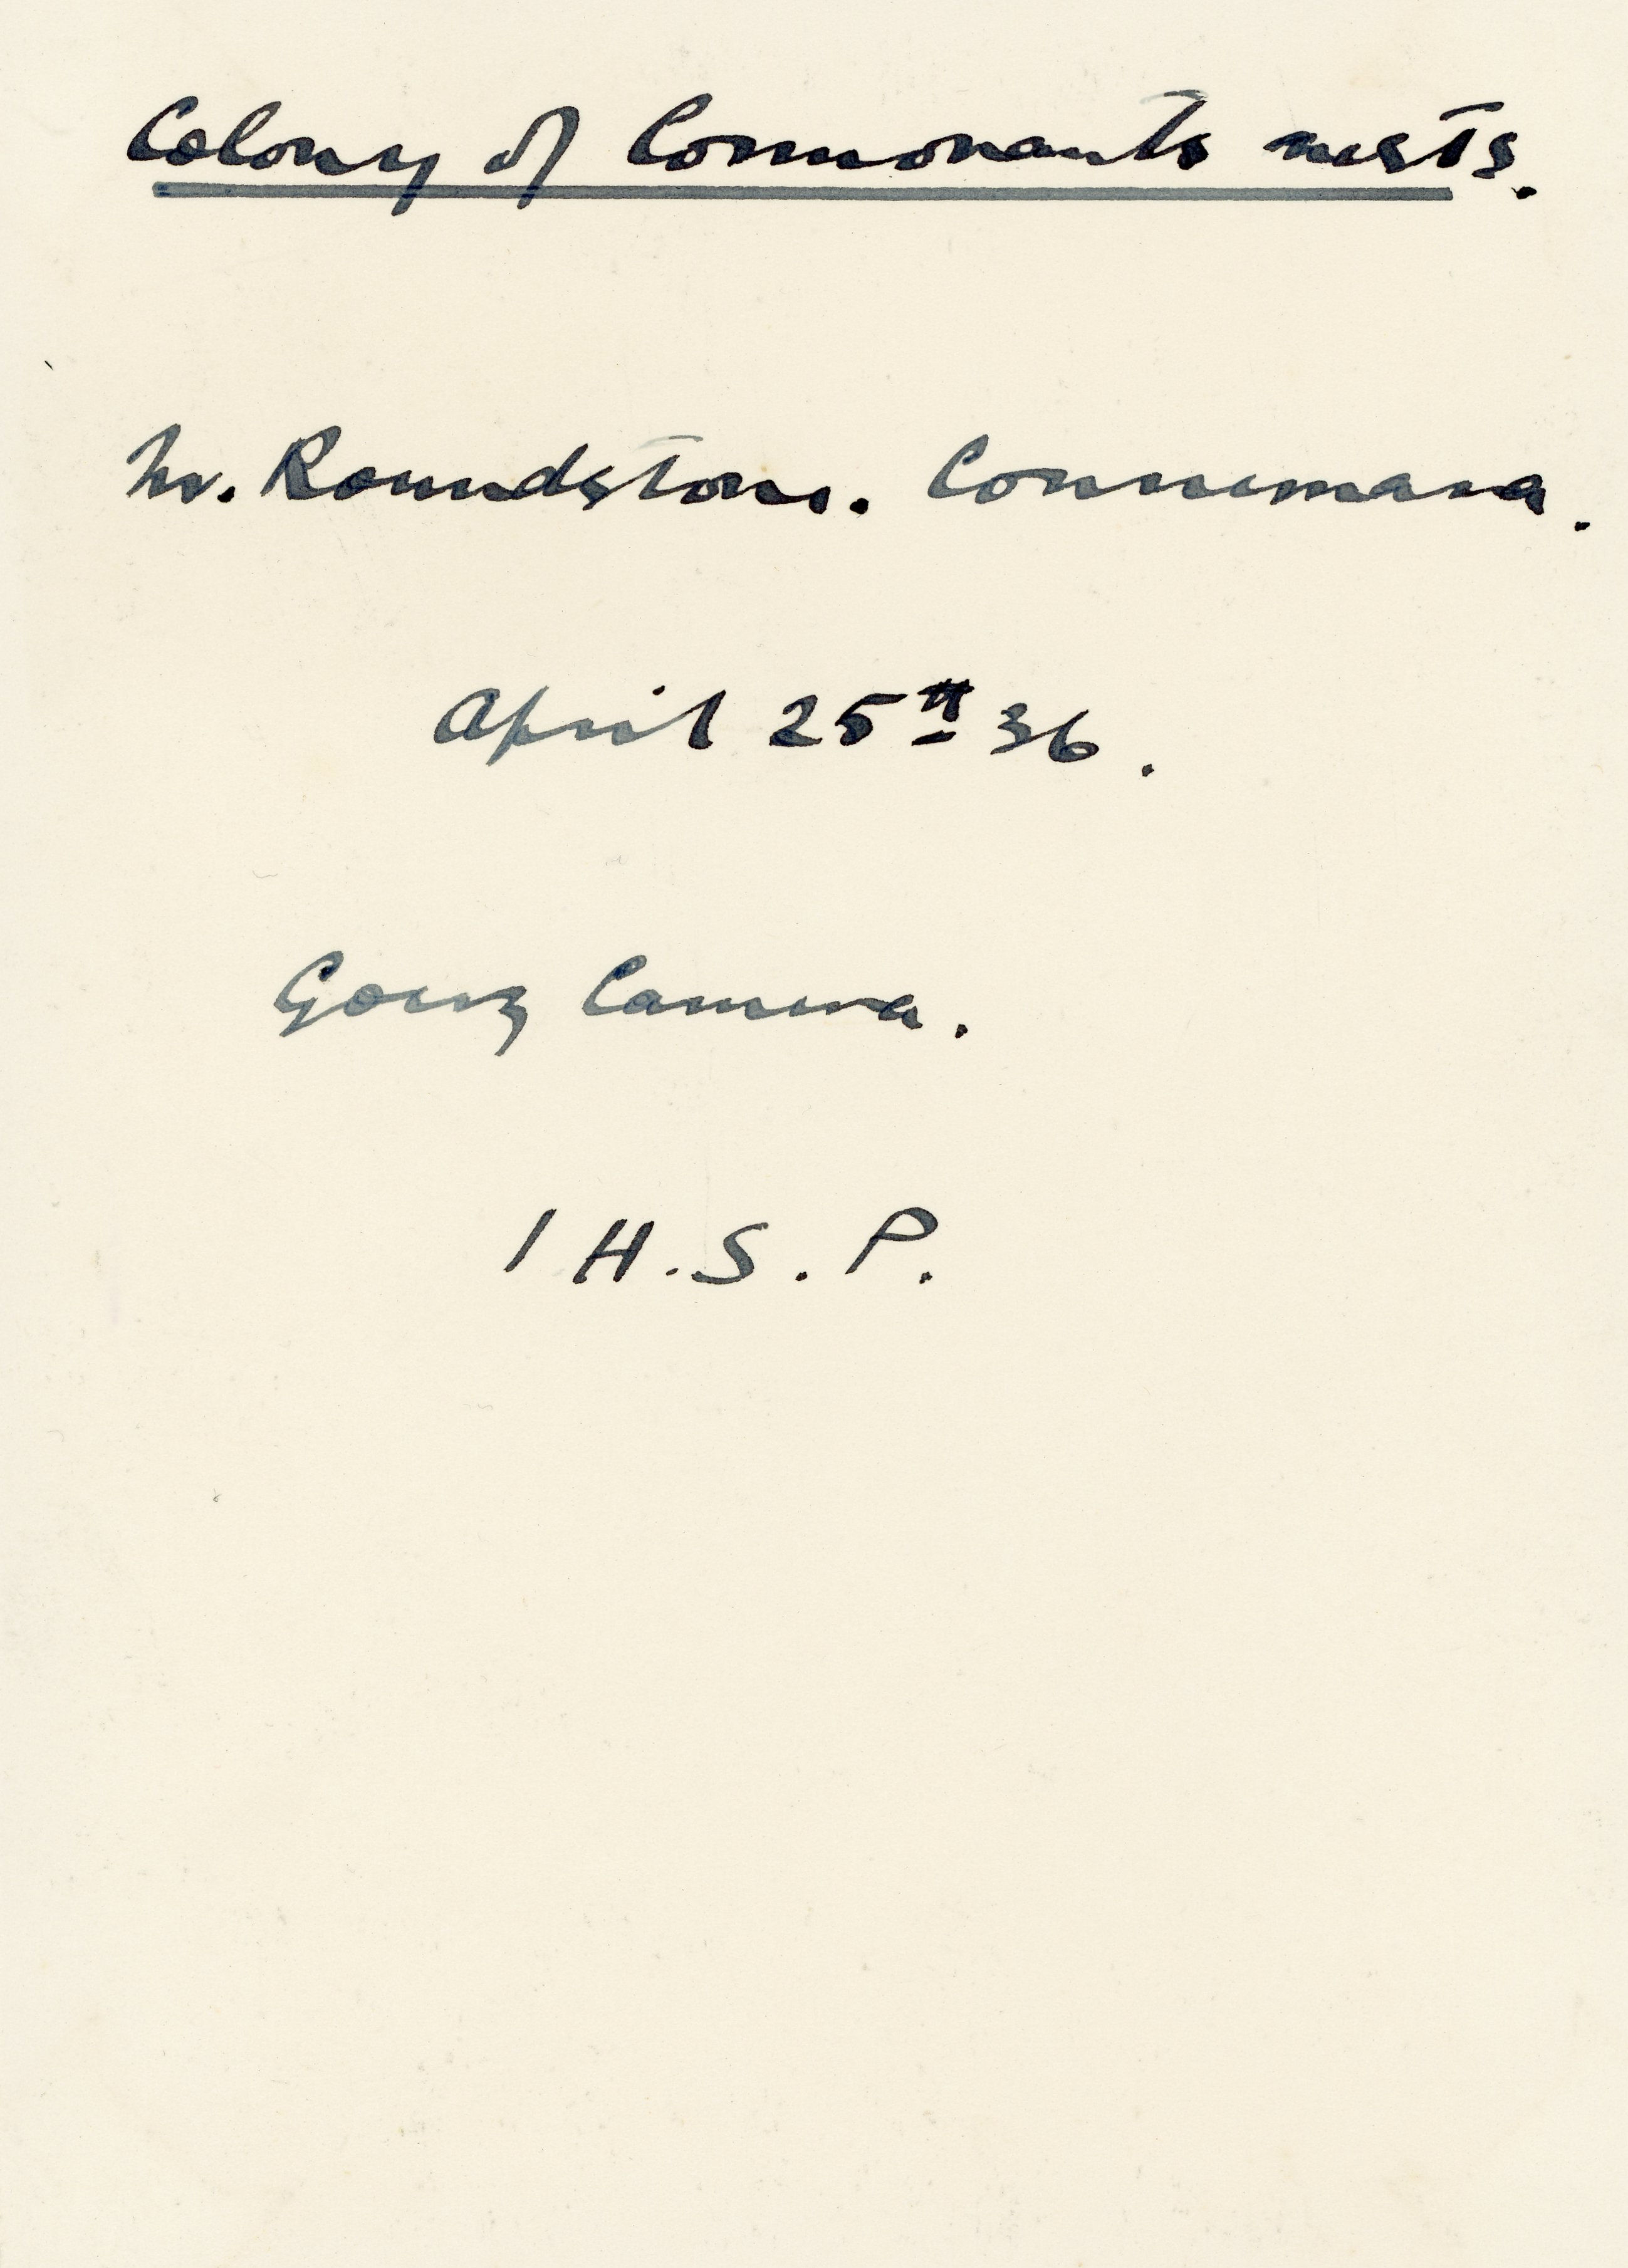 Colony of Cormorants nests.
Nr. Roundstone. Connemara.
April 25th 36.
Goerz Camera.
1 H.S.P.